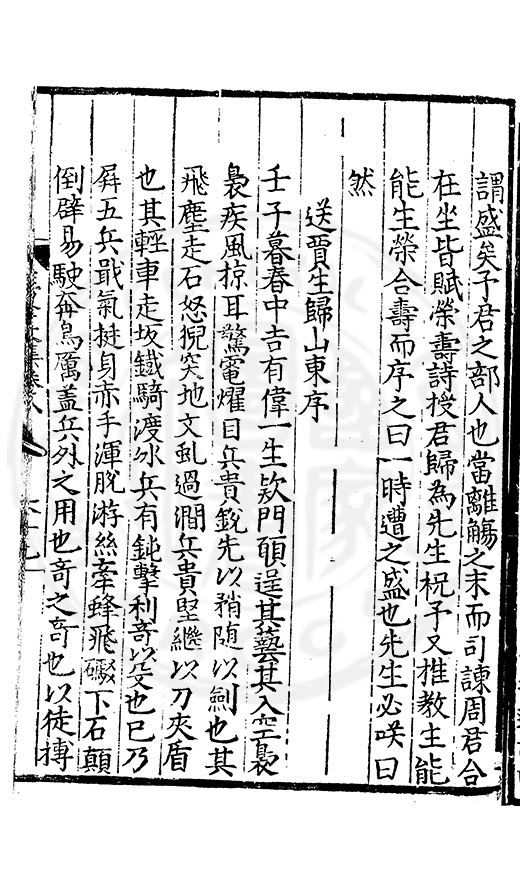 謂盛矣予君之部人也當離觴之末而司諫周君合
在坐皆賦榮壽詩授君歸為先生祝予又推教生能
能生榮合壽而序之曰一時遭之盛也先生必咲曰
然
送賈生歸山東序
壬子暮春中吉有偉一生欵門頋逞其藝其入空褭
褭疾風掠耳驚電燿目兵貴銳先以矟隨以劍也其
飛塵走石怒猊突地文虬過澗兵貴堅繼以刀夾盾
也其輕車走坂鐡騎渡氷兵有鈍擊利竒以受也已乃
屏五兵戢氣挺身赤手渾脫游絲牽蜂飛礮下石顛
倒辟易駛奔鳥厲盖兵外之用也竒之竒也以徒搏